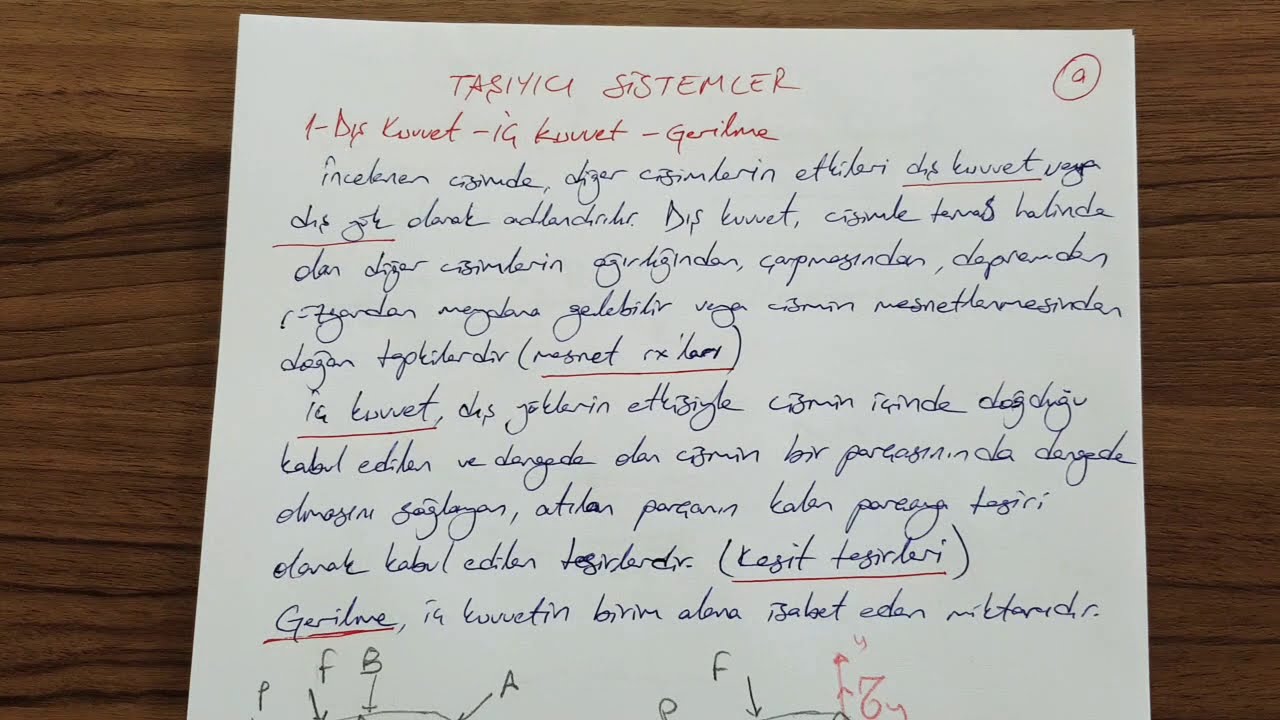 TAŞIYICI SİSTEMLER
a
1-Dış kuvvet - İç kuvvet - Gerilme
İncelenen cisimde, diğer cisimlerin etkileri dış kuvvet veya
dış yük olarak adlandırılır. Dış kuvvet, cisimle temas halinde
olan diğer cisimlerin ağırlığından, çarpmasından, depremden
rüzgardan meydana gelebilir veya cismin mesnetlenmesinden
doğan tepkilerdir (mesnet rx'ları)
İç kuvvet, dış yüklerin etkisiyle cismin içinde doğduğu
kabul edilen ve dengede olan cismin bir parçasınında dengede
olmasını sağlayan, atılan parçanın kalan parçaya tesiri
olarak kabul edilen tesirlerdir. (Kesit tesirleri)
Gerilme, iç kuvvetin birim alana isabet eden miktarıdır.
P F B A P F y